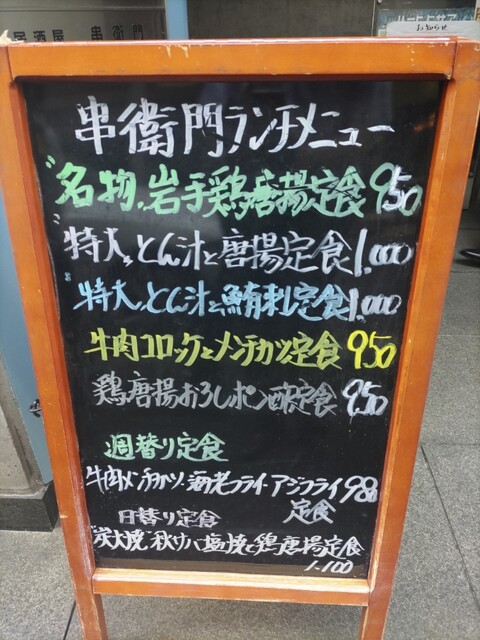 居酒屋 串衛門
お知らせ
串衛門ランチメニュー
"名物"岩手鶏唐揚定食950
"特大"とん汁と唐揚定食1.000
"特大"とん汁と鮪刺し定食1.000
牛肉コロッケとメンチカツ定食950
鶏唐揚おろしポン酢定食950
週替り定食
牛肉メンチカツ・海老フライ・アジフライ980
定食
日替り定食
"炭火焼"秋サバ塩焼と鶏唐揚定食
1.100